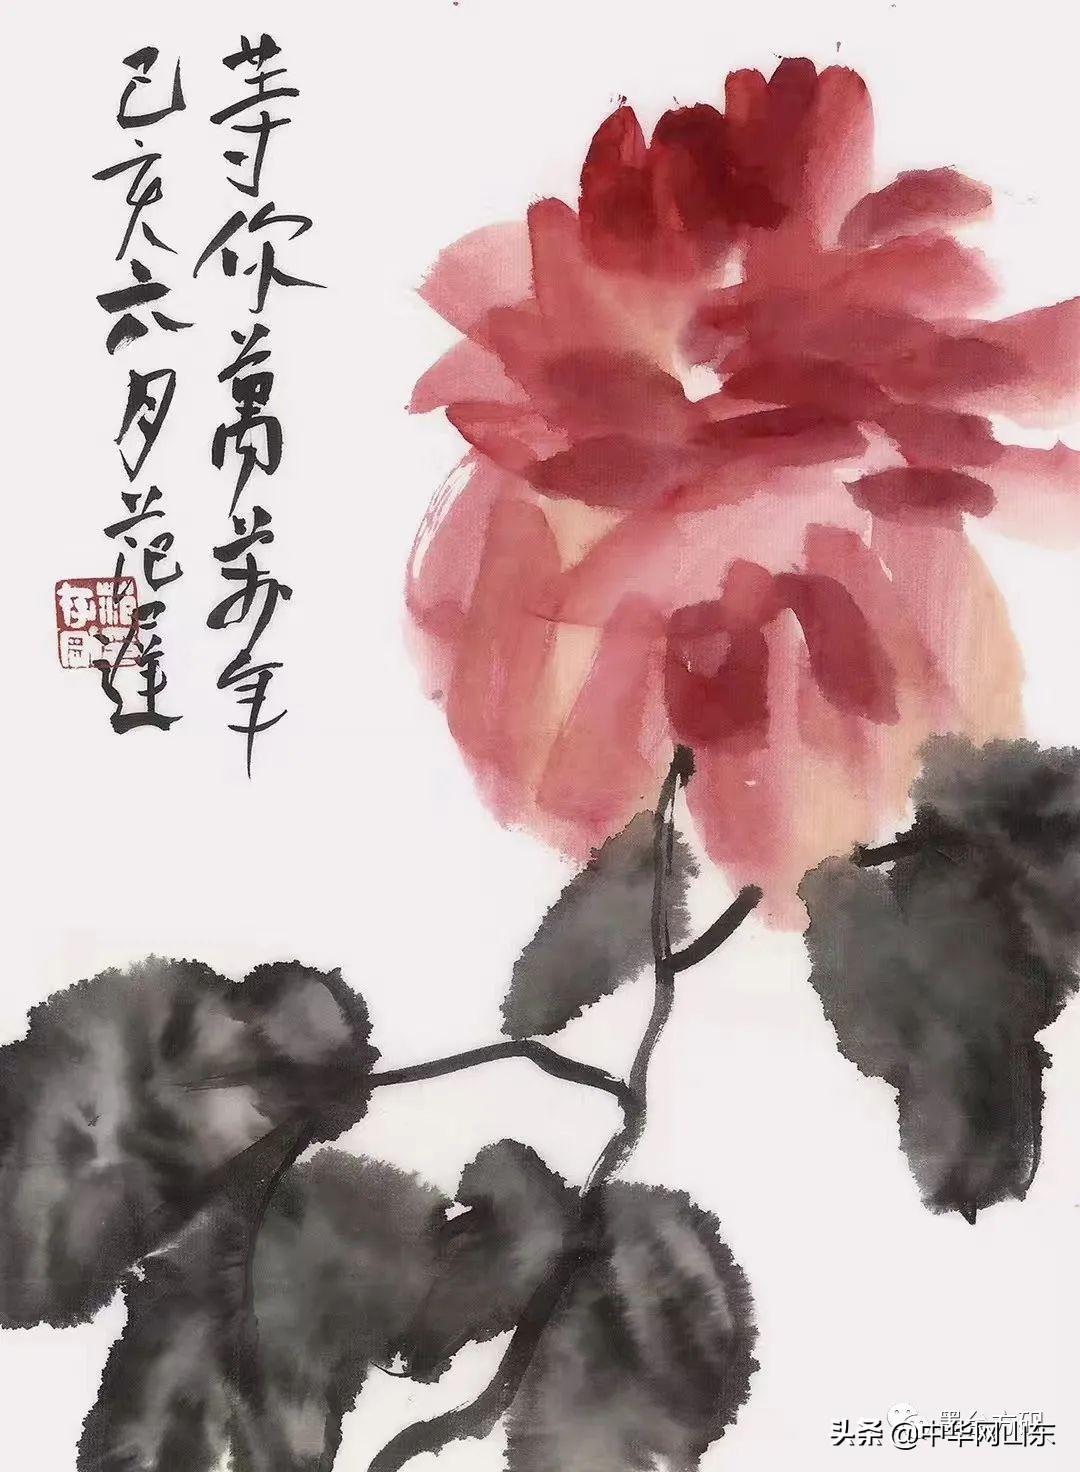 等你萬萬年
己亥六月范
墨台方砚
头条 @中华网山东